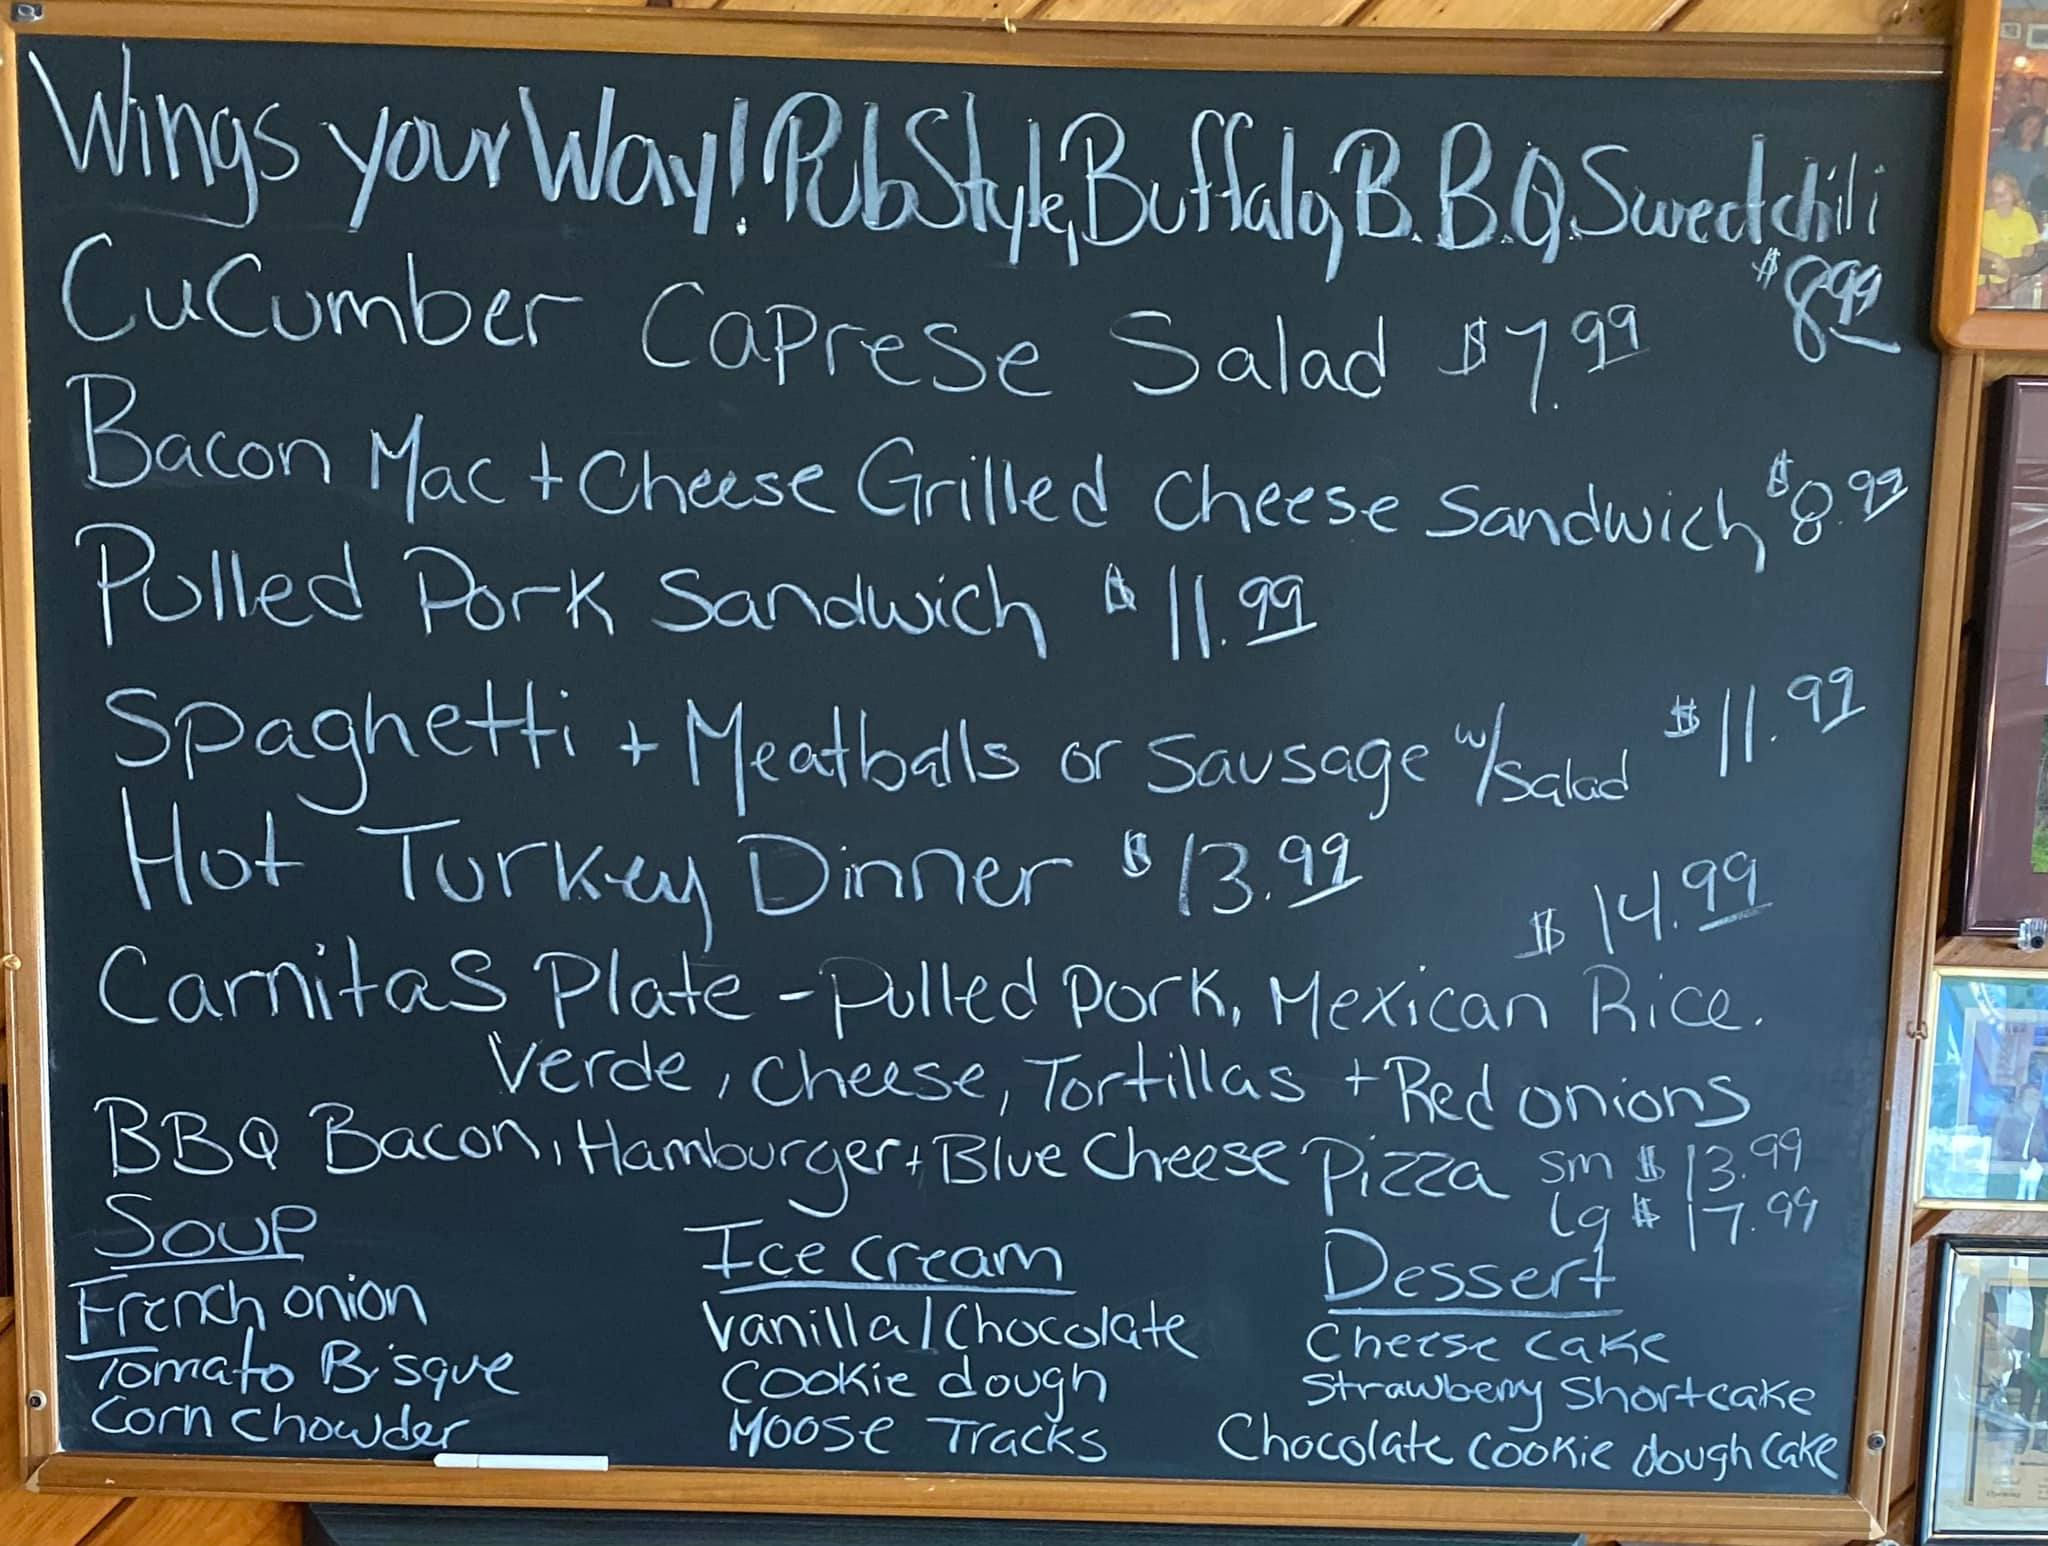 Wings your Way! Pub Style, Buffalo, B.B.Q. Sweet chili
$8.99
Cucumber Caprese Salad $7.99
Bacon Mac + Cheese Grilled Cheese Sandwich $8.99
Pulled Pork Sandwich $11.99
Spaghetti + Meatballs or Sausage w/Salad $11.99
Hot Turkey Dinner $13.99
$14.99
Carnitas Plate - Pulled Pork, Mexican Rice.
Verde, Cheese, Tortillas + Red onions
BBQ Bacon, Hamburger + Blue Cheese Pizza sm $13.99
lg $17.99
Soup
French onion
Tomato Bisque
Corn Chowder
Ice Cream
Vanilla/Chocolate
Cookie dough
Moose Tracks
Dessert
Cheese Cake
Strawberry Shortcake
Chocolate Cookie dough Cake